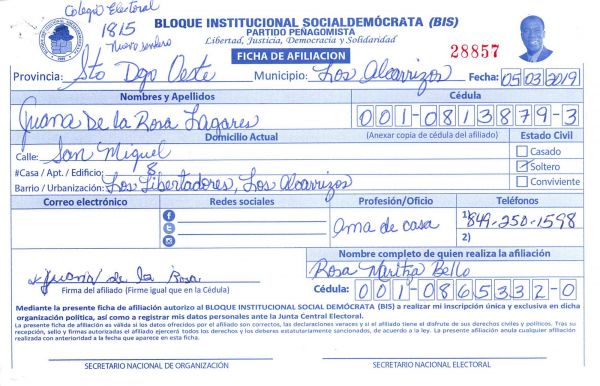 Colegio Electoral
1815
Nuevo sendero
BLOQUE INSTITUCIONAL SOCIALDEMÓCRATA (BIS)
PARTIDO PEÑAGOMISTA
Libertad, Justicia, Democracia y Solidaridad
FICHA DE AFILIACION
28857
Provincia: Sto Dgo Oeste Municipio: Los Alcarrizos Fecha: 05/03/2019
Nombres y Apellidos Cédula
Juana De la Rosa Lagares 001-0813879-3
Domicilio Actual (Anexar copia de cédula del afiliado) Estado Civil
Calle: San Miguel Casado
#Casa / Apt. / Edificio: 8 Soltero
Barrio / Urbanización: Los Libertadores, Los Alcarrizos Conviviente
Correo electrónico Redes sociales Profesión/Oficio Teléfonos
Ama de casa 1) 849-250-1598
2)
Nombre completo de quien realiza la afiliación
Rosa Maritza Bello
x Juana de la Rosa
Firma del afiliado (Firme igual que en la Cédula) Cédula: 001-0865332-0
Mediante la presente ficha de afiliación autorizo al BLOQUE INSTITUCIONAL SOCIAL DEMÓCRATA (BIS) a realizar mi inscripción única y exclusiva en dicha
organización política, así como a registrar mis datos personales ante la Junta Central Electoral.
La presente ficha de afiliación es válida si los datos ofrecidos por el afiliado son correctos, las declaraciones veraces y si el afiliado tiene el disfrute de sus derechos civiles y políticos. Tras su
recepción, sello y firmas autorizadas el afiliado ejercerá todos los derechos y los deberes estatutariamente sancionados, de acuerdo a la ley. La presente afiliación anula cualquier afiliación
realizada con anterioridad a la fecha que aparece en esta ficha.
SECRETARIO NACIONAL DE ORGANIZACIÓN SECRETARIO NACIONAL ELECTORAL